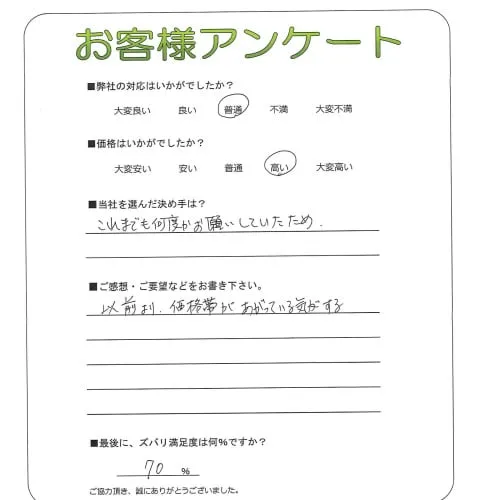 お客様アンケート
■弊社の対応はいかがでしたか？
大変良い 良い 普通 不満 大変不満
■価格はいかがでしたか？
大変安い 安い 普通 高い 大変高い
■当社を選んだ決め手は？
これまでも何度かお願いしていたため.
■ご感想・ご要望などをお書き下さい。
以前より、価格帯があがっている気がする
■最後に、ズバリ満足度は何％ですか？
70 ％
ご協力頂き、誠にありがとうございました。